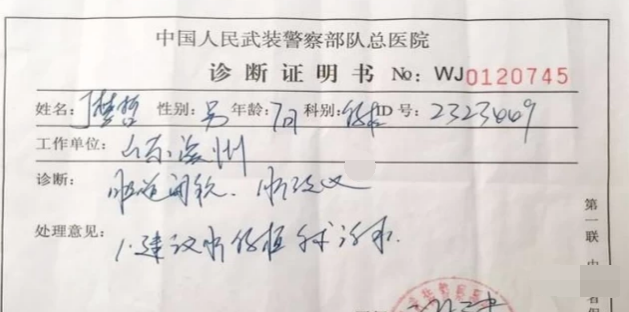 中国人民武装警察部队总医院
诊断证明书 No: WJ0120745
姓名: 丁楚哲 性别: 男 年龄: 7月 科别: 移植 ID号: 2323669
工作单位: 山东滨州
诊断: 胆道闭锁、肝硬化
处理意见: 1.建议肝移植手术治疗.
第一联